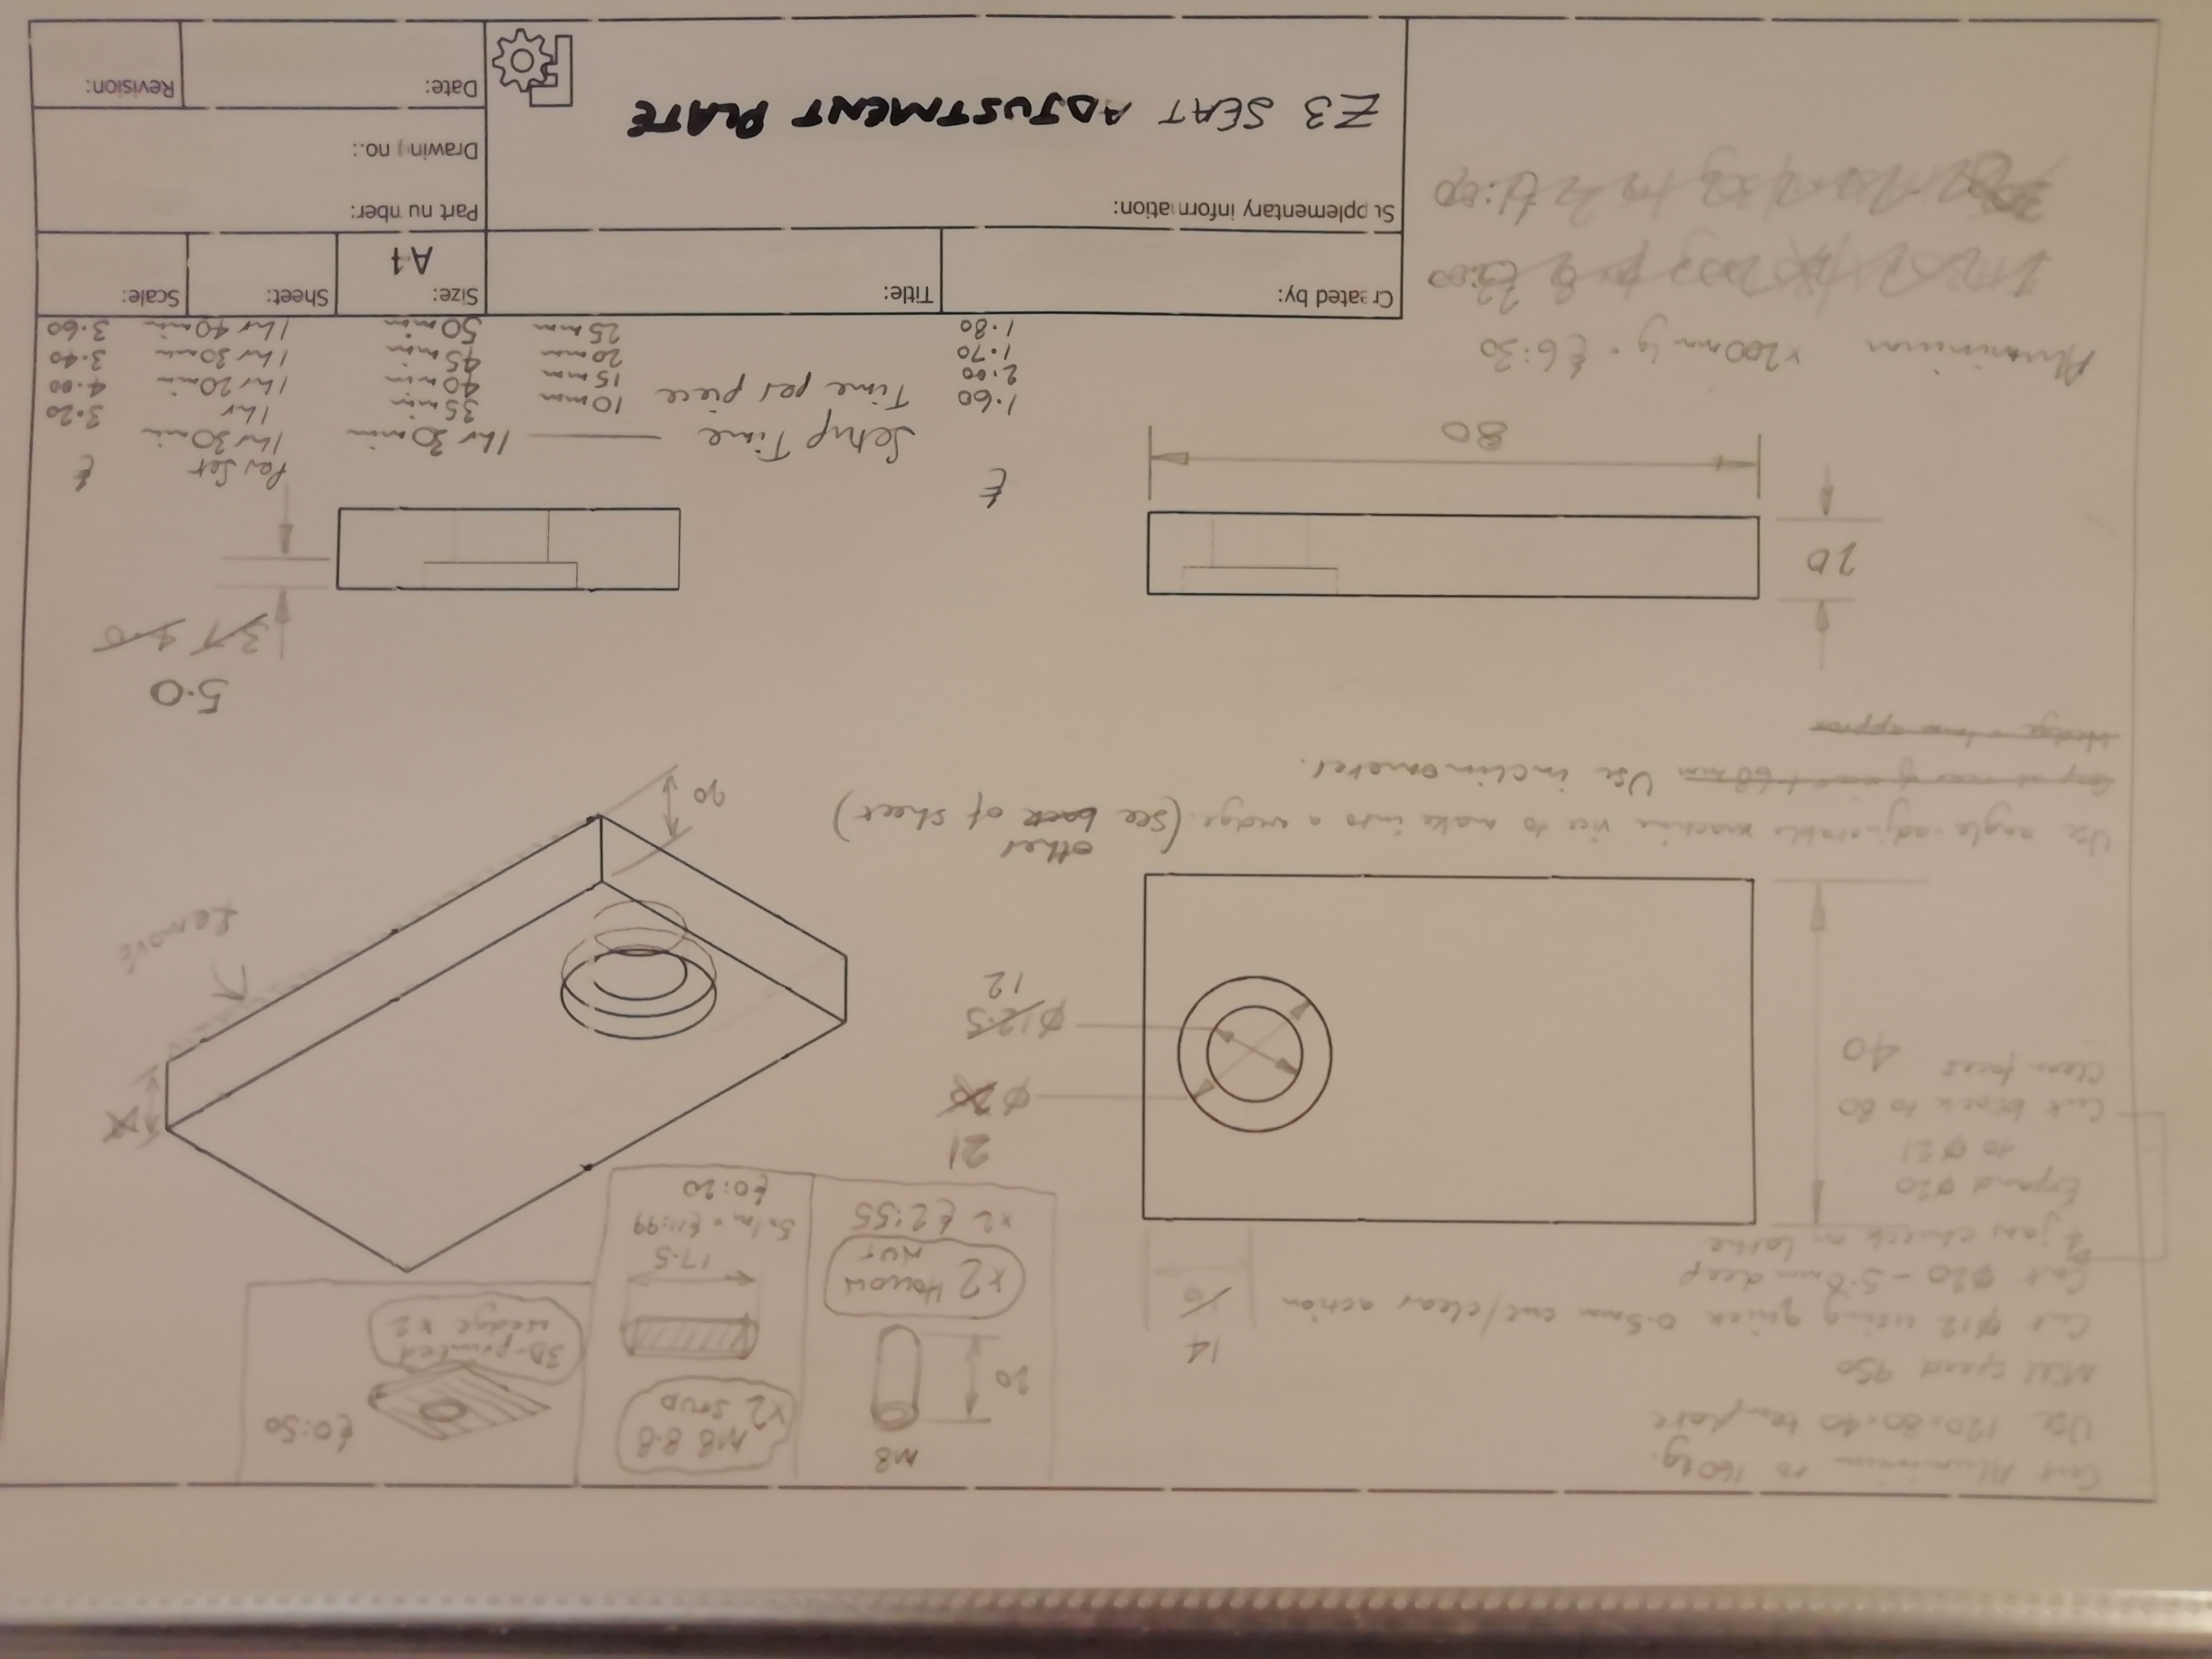 Cut Aluminium to 160lg.
Use 120x80x40 template
Mill speed 950
Cut ø12 using quick 0.5mm cut/clear action
Cut ø20 - 5.0mm deep
4 jaw chuck on lathe
Expand ø20
to ø21
Cut block to 80
Clean faces
40
14
M8
20
x2 HOLLOW
NUT
x2 £2:55
M8 8.8
x2 STUD
17.5
5x1m = £11:99
£0:20
3D-printed
wedge x2
£0:50
21
ø20
ø12.5
12
Remove
20
Use angle-adjustable machine vice to make into a wedge. (See back of sheet)
other
Use inclinometer.
Wedge = 1mm approx
5.0
20
80
Aluminium x200mm lg = £6:30
£3:00
£1:80
£
Setup Time
1hr 30min
Per Set
1hr 30min
£
1.60
Time per piece
10mm
35min
1hr
3.20
2.00
15mm
40min
1hr 20min
4.00
1.70
20mm
45min
1hr 30min
3.40
1.80
25mm
50min
1hr 40min
3.60
Created by:
Title:
Size:
A4
Sheet:
Scale:
Supplementary information:
Part number:
Drawing no.:
Z3 SEAT ADJUSTMENT PLATE
Date:
Revision: